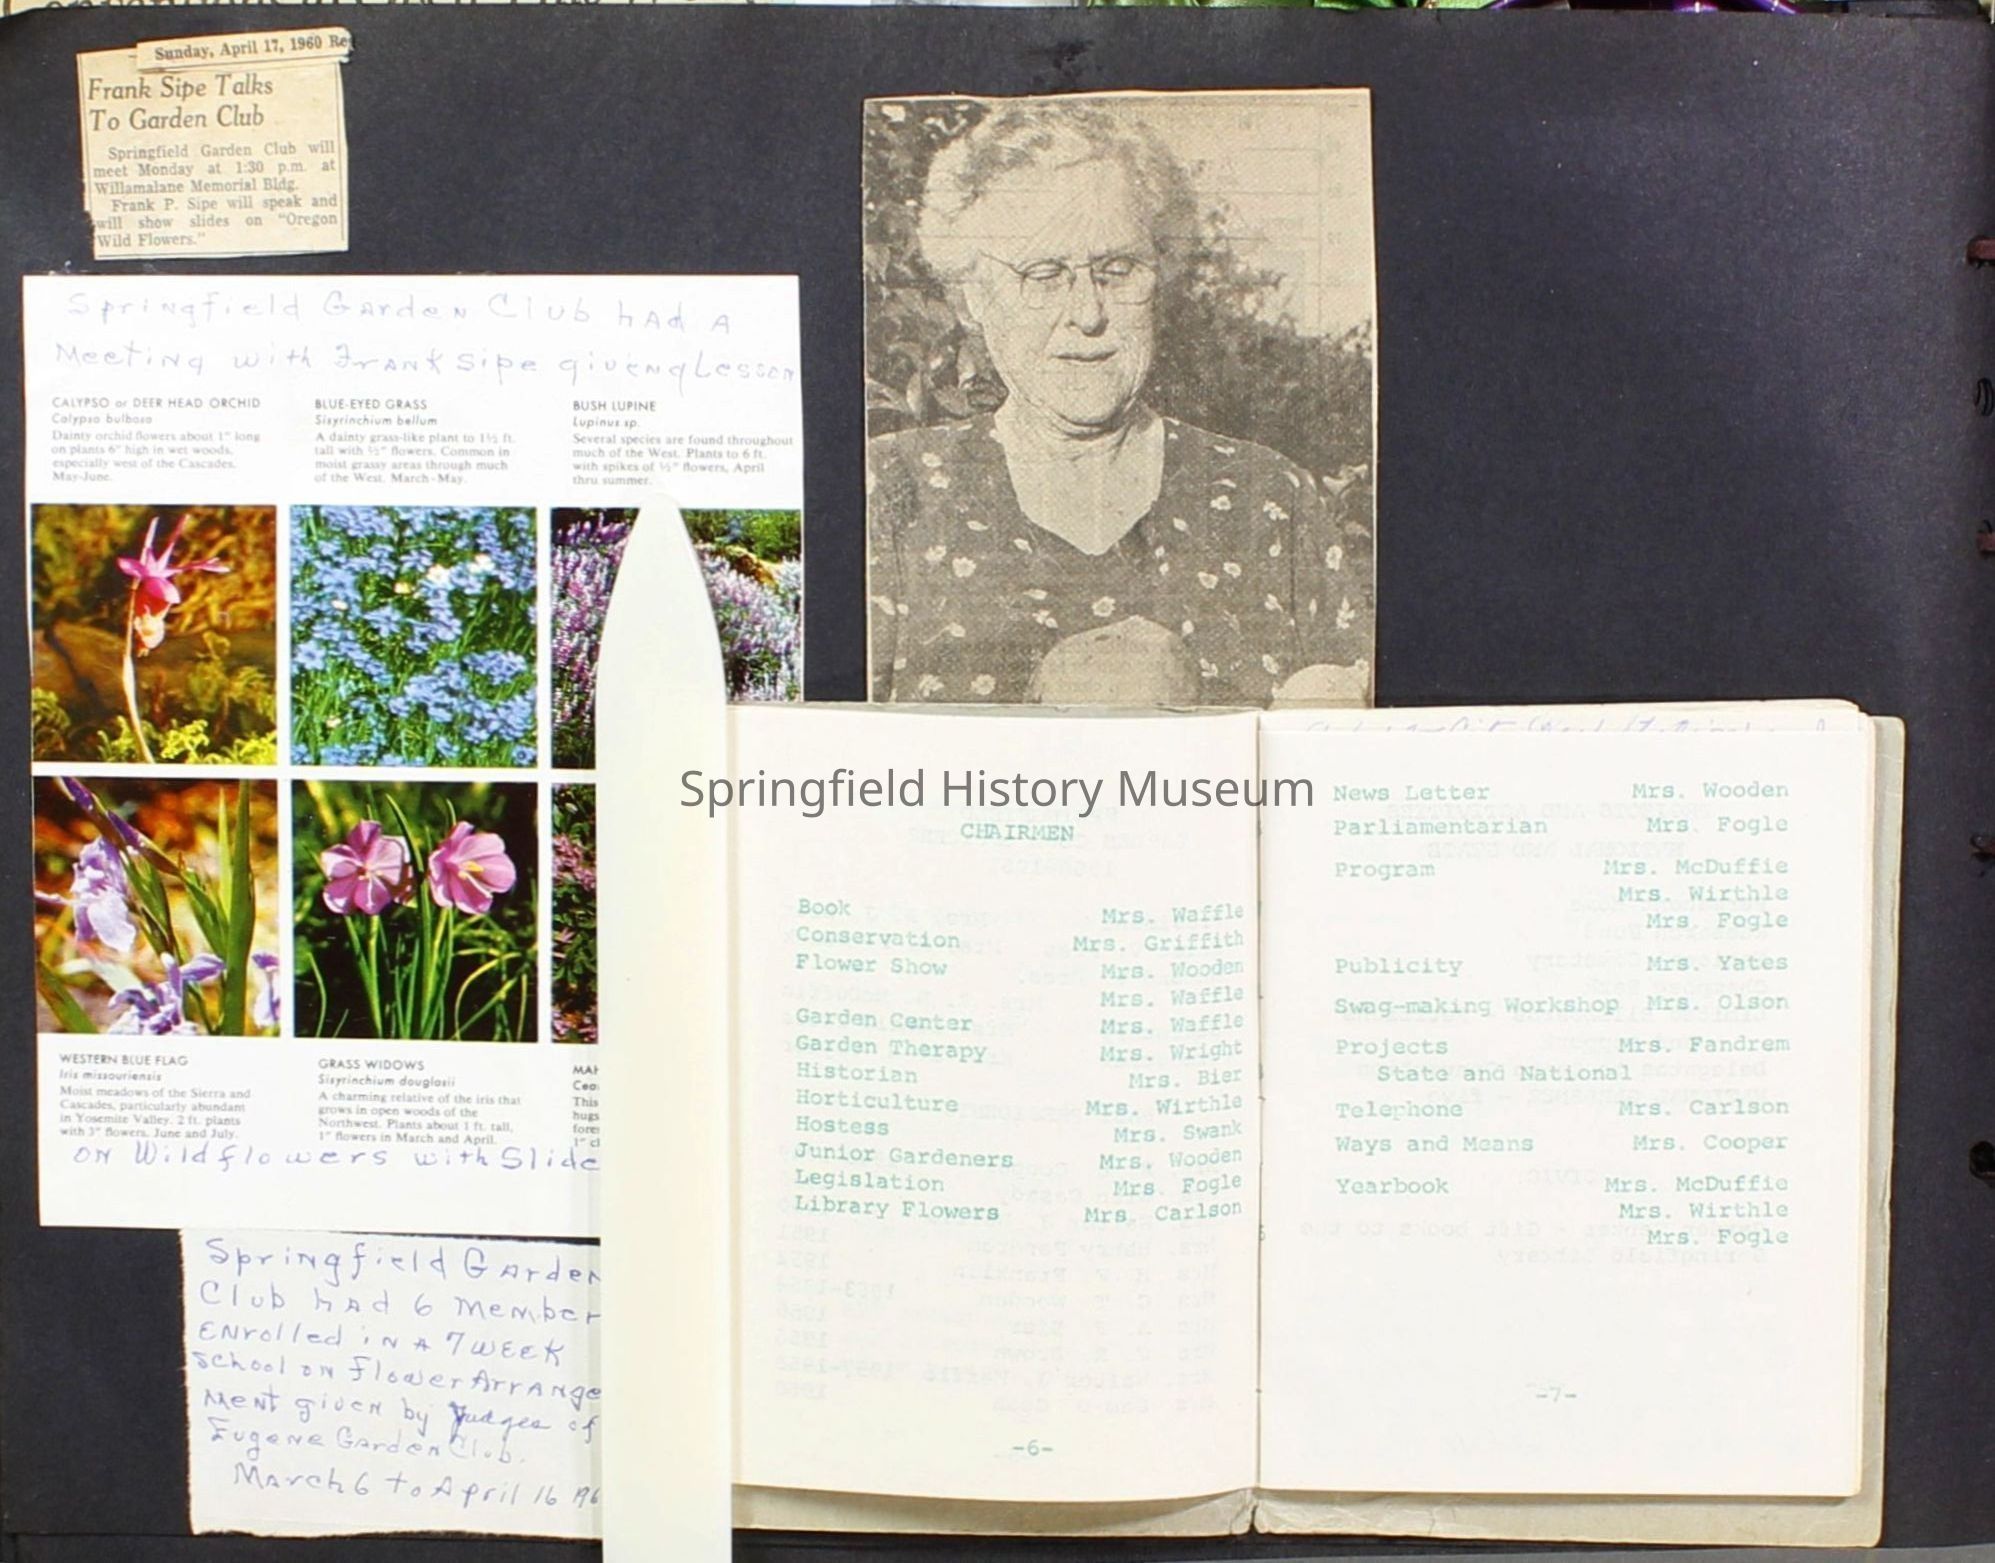 Sunday, April 17, 1960
Frank Sipe Talks
To Garden Club
Springfield Garden Club will
meet Monday at 1:30 p.m. at
Willamalane Memorial Bldg.
Frank P. Sipe will speak and
will show slides on "Oregon
Wild Flowers."
Springfield Garden Club had a
Meeting with Frank Sipe giveng Lesson
CALYPSO or DEER HEAD ORCHID
Calypso bulbosa
Dainty orchid flowers about 1" long
on plants 6" high in wet woods,
especially west of the Cascades.
May-June.
BLUE-EYED GRASS
Sisyrinchium bellum
A dainty grass-like plant to 1½ ft.
tall with ½" flowers. Common in
moist grassy areas through much
of the West. March-May.
BUSH LUPINE
Lupinus sp.
Several species are found throughout
much of the West. Plants to 6 ft.
with spikes of ½" flowers, April
thru summer.
WESTERN BLUE FLAG
Iris missouriensis
Moist meadows of the Sierra and
Cascades, particularly abundant
in Yosemite Valley. 2 ft. plants
with 3" flowers. June and July.
GRASS WIDOWS
Sisyrinchium douglasii
A charming relative of the iris that
grows in open woods of the
Northwest. Plants about 1 ft. tall,
1" flowers in March and April.
This
hugs
on Wildflowers with Slide
Springfield Garden
Club had 6 Member
Enrolled in a 7 week
School on Flower Arrange
ment given by Judges of
Eugene Garden Club.
March 6 to April 16
Springfield History Museum
CHAIRMEN
Book Mrs. Waffle
Conservation Mrs. Griffith
Flower Show Mrs. Wooden
Mrs. Waffle
Garden Center Mrs. Waffle
Garden Therapy Mrs. Wright
Historian Mrs. Bier
Horticulture Mrs. Wirthle
Hostess Mrs. Swank
Junior Gardeners Mrs. Wooden
Legislation Mrs. Fogle
Library Flowers Mrs. Carlson
-6-
News Letter Mrs. Wooden
Parliamentarian Mrs. Fogle
Program Mrs. McDuffie
Mrs. Wirthle
Mrs. Fogle
Publicity Mrs. Yates
Swag-making Workshop Mrs. Olson
Projects Mrs. Fandrem
State and National
Telephone Mrs. Carlson
Ways and Means Mrs. Cooper
Yearbook Mrs. McDuffie
Mrs. Wirthle
Mrs. Fogle
-7-